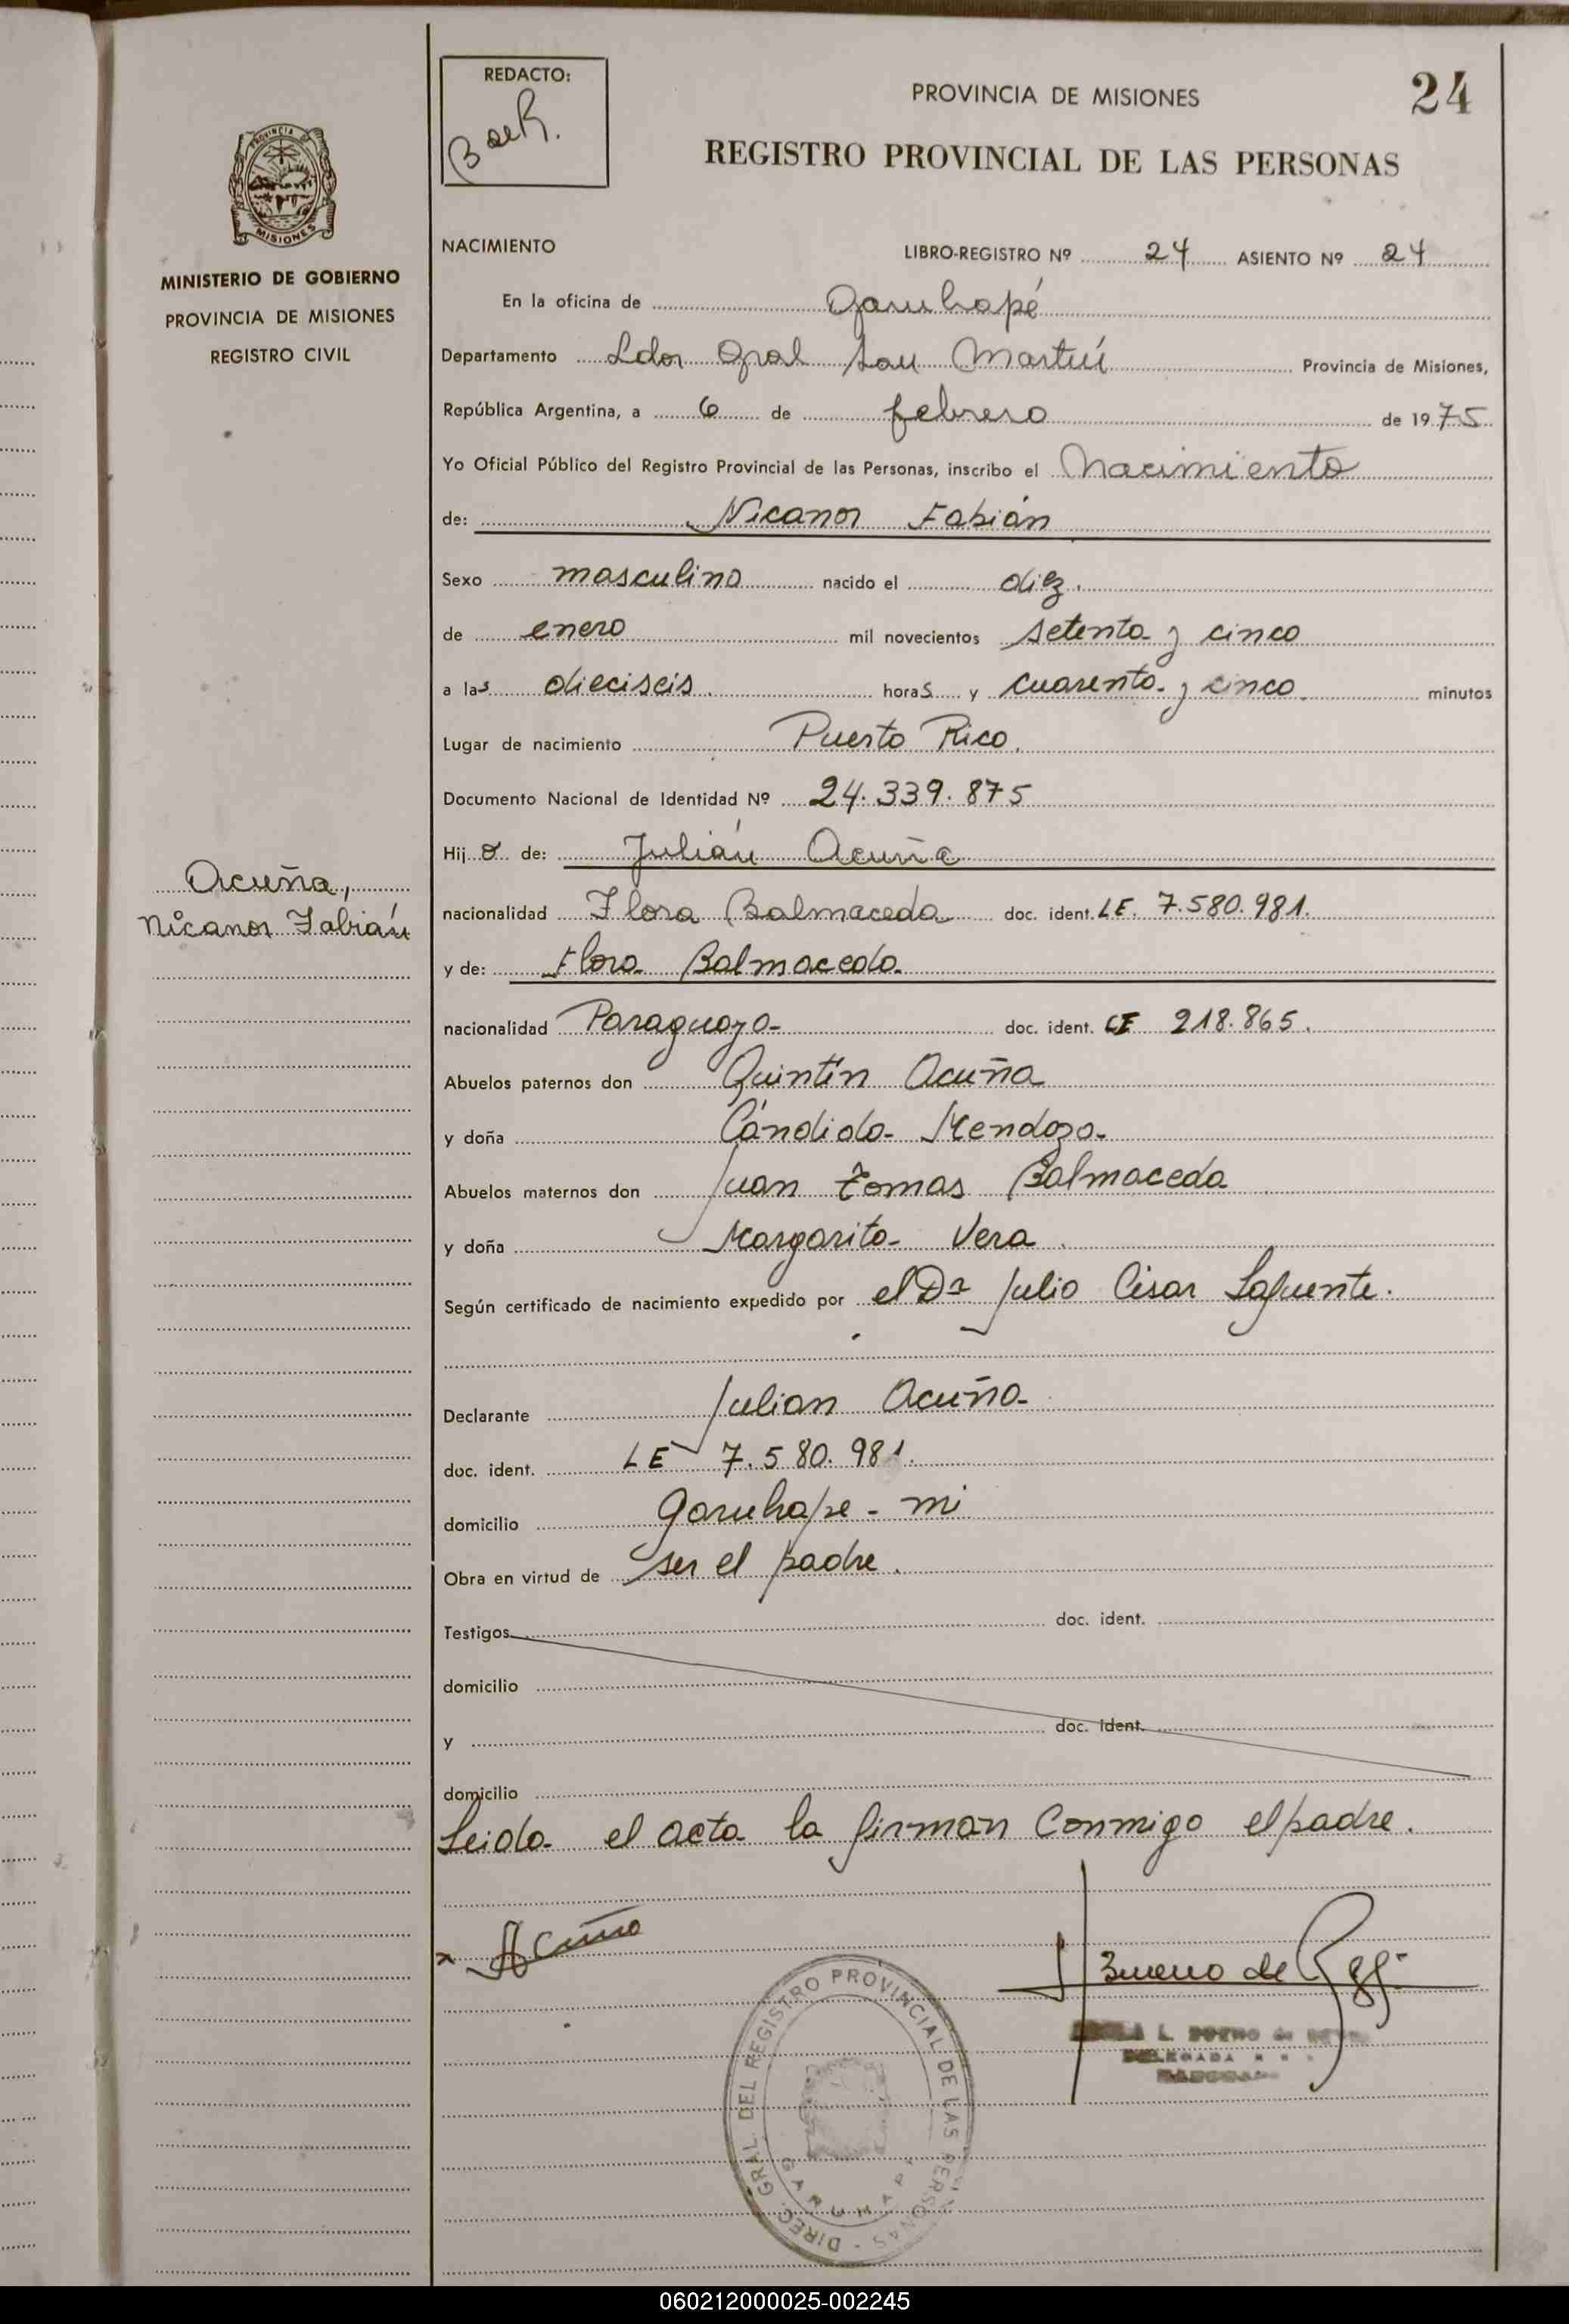 24
REDACTO:
B de R.
PROVINCIA DE MISIONES
REGISTRO PROVINCIAL DE LAS PERSONAS
PROVINCIA DE
MISIONES
MINISTERIO DE GOBIERNO
PROVINCIA DE MISIONES
REGISTRO CIVIL
NACIMIENTO LIBRO-REGISTRO Nº 24 ASIENTO Nº 24
En la oficina de Garuhapé
Departamento Ldor Gral San Martín Provincia de Misiones,
República Argentina, a 6 de febrero de 1975
Yo Oficial Público del Registro Provincial de las Personas, inscribo el Nacimiento
de: Nicanor Fabián
Sexo masculino nacido el diez.
de enero mil novecientos setenta y cinco
a las dieciseis. horas y cuarenta y cinco. minutos
Lugar de nacimiento Puerto Rico.
Documento Nacional de Identidad Nº 24.339.875
Hijo de: Julián Acuña
Acuña,
Nicanor Fabián
nacionalidad Flora Balmaceda doc. ident. LE. 7.580.981.
y de: Flora Balmaceda
nacionalidad Paraguaya doc. ident. CI 218.865.
Abuelos paternos don Quintín Acuña
y doña Cándida Mendoza
Abuelos maternos don Juan Tomas Balmaceda
y doña Margarita Vera
Según certificado de nacimiento expedido por el Dr Julio César Lafuente.
Declarante Julian Acuña
doc. ident. LE 7.580.981.
domicilio Garuhape - mi
Obra en virtud de ser el padre.
Testigos doc. ident.
domicilio
y doc. ident.
domicilio
Leida el acta la firman conmigo el padre.
x Acuña
Bueno de
L. BUENO de
DELEGADA
DIREC. GRAL. DEL REGISTRO PROVINCIAL DE LAS PERSONAS -
GARUHAPE
060212000025-002245